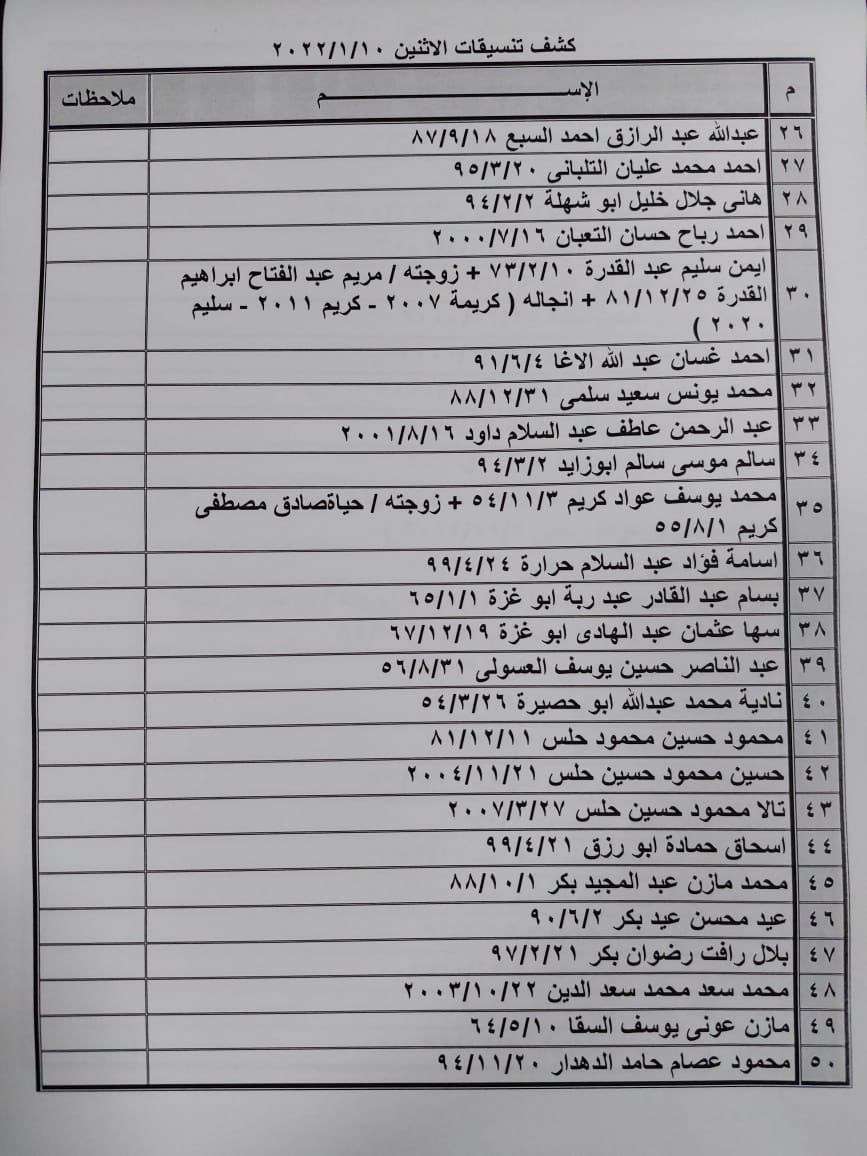 كشف تنسيقات الاثنين ٢٠٢٢/١/١٠
م الإســـــــــــــــــــــــــــــــــــــــم ملاحظات
٢٦ عبدالله عبد الرازق احمد السبع ٨٧/٩/١٨
٢٧ احمد محمد عليان التلبانى ٩٥/٣/٢٠
٢٨ هانى جلال خليل ابو شهلة ٩٤/٢/٢
٢٩ احمد رباح حسان التعبان ٢٠٠٠/٧/١٦
٣٠ ايمن سليم عبد القدرة ٧٣/٢/١٠ + زوجته / مريم عبد الفتاح ابراهيم
القدرة ٨١/١٢/٢٥ + انجاله ( كريمة ٢٠٠٧ - كريم ٢٠١١ - سليم
٢٠٢٠ )
٣١ احمد غسان عبد الله الاغا ٩١/٦/٤
٣٢ محمد يونس سعيد سلمى ٨٨/١٢/٣١
٣٣ عبد الرحمن عاطف عبد السلام داود ٢٠٠١/٨/١٦
٣٤ سالم موسى سالم ابوزايد ٩٤/٣/٢
٣٥ محمد يوسف عواد كريم ٥٤/١١/٣ + زوجته / حياةصادق مصطفى
كريم ٥٥/٨/١
٣٦ اسامة فؤاد عبد السلام حرارة ٩٩/٤/٢٤
٣٧ بسام عبد القادر عبد ربة ابو غزة ٦٥/١/١
٣٨ سها عثمان عبد الهادى ابو غزة ٦٧/١٢/١٩
٣٩ عبد الناصر حسين يوسف العسولى ٥٦/٨/٣١
٤٠ نادية محمد عبدالله ابو حصيرة ٥٤/٣/٢٦
٤١ محمود حسين محمود حلس ٨١/١٢/١١
٤٢ حسين محمود حسين حلس ٢٠٠٤/١١/٢١
٤٣ تالا محمود حسين حلس ٢٠٠٧/٣/٢٧
٤٤ اسحاق حمادة ابو رزق ٩٩/٤/٢١
٤٥ محمد مازن عبد المجيد بكر ٨٨/١٠/١
٤٦ عيد محسن عيد بكر ٩٠/٦/٢
٤٧ بلال رافت رضوان بكر ٩٧/٢/٢١
٤٨ محمد سعد محمد سعد الدين ٢٠٠٣/١٠/٢٢
٤٩ مازن عونى يوسف السقا ٦٤/٥/١٠
٥٠ محمود عصام حامد الدهدار ٩٤/١١/٢٠